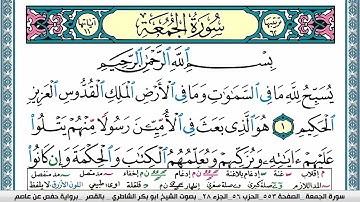 ترتيبها ٦٢ سُورَةُ الْجُمُعَةِ آياتها ١١
بِسْمِ اللَّهِ الرَّحْمَٰنِ الرَّحِيمِ
يُسَبِّحُ لِلَّهِ مَا فِي السَّمَاوَاتِ وَمَا فِي الْأَرْضِ الْمَلِكِ الْقُدُّوسِ الْعَزِيزِ
الْحَكِيمِ ١ هُوَ الَّذِي بَعَثَ فِي الْأُمِّيِّينَ رَسُولًا مِنْهُمْ يَتْلُوا
عَلَيْهِمْ آيَاتِهِ وَيُزَكِّيهِمْ وَيُعَلِّمُهُمُ الْكِتَابَ وَالْحِكْمَةَ وَإِنْ كَانُوا
سورة الجمعة الصفحة ٥٥٣ الحزب ٥٦ الجزء ٢٨ بصوت الشيخ ابو بكر الشاطري .. بالقصر برواية حفص عن عاصم